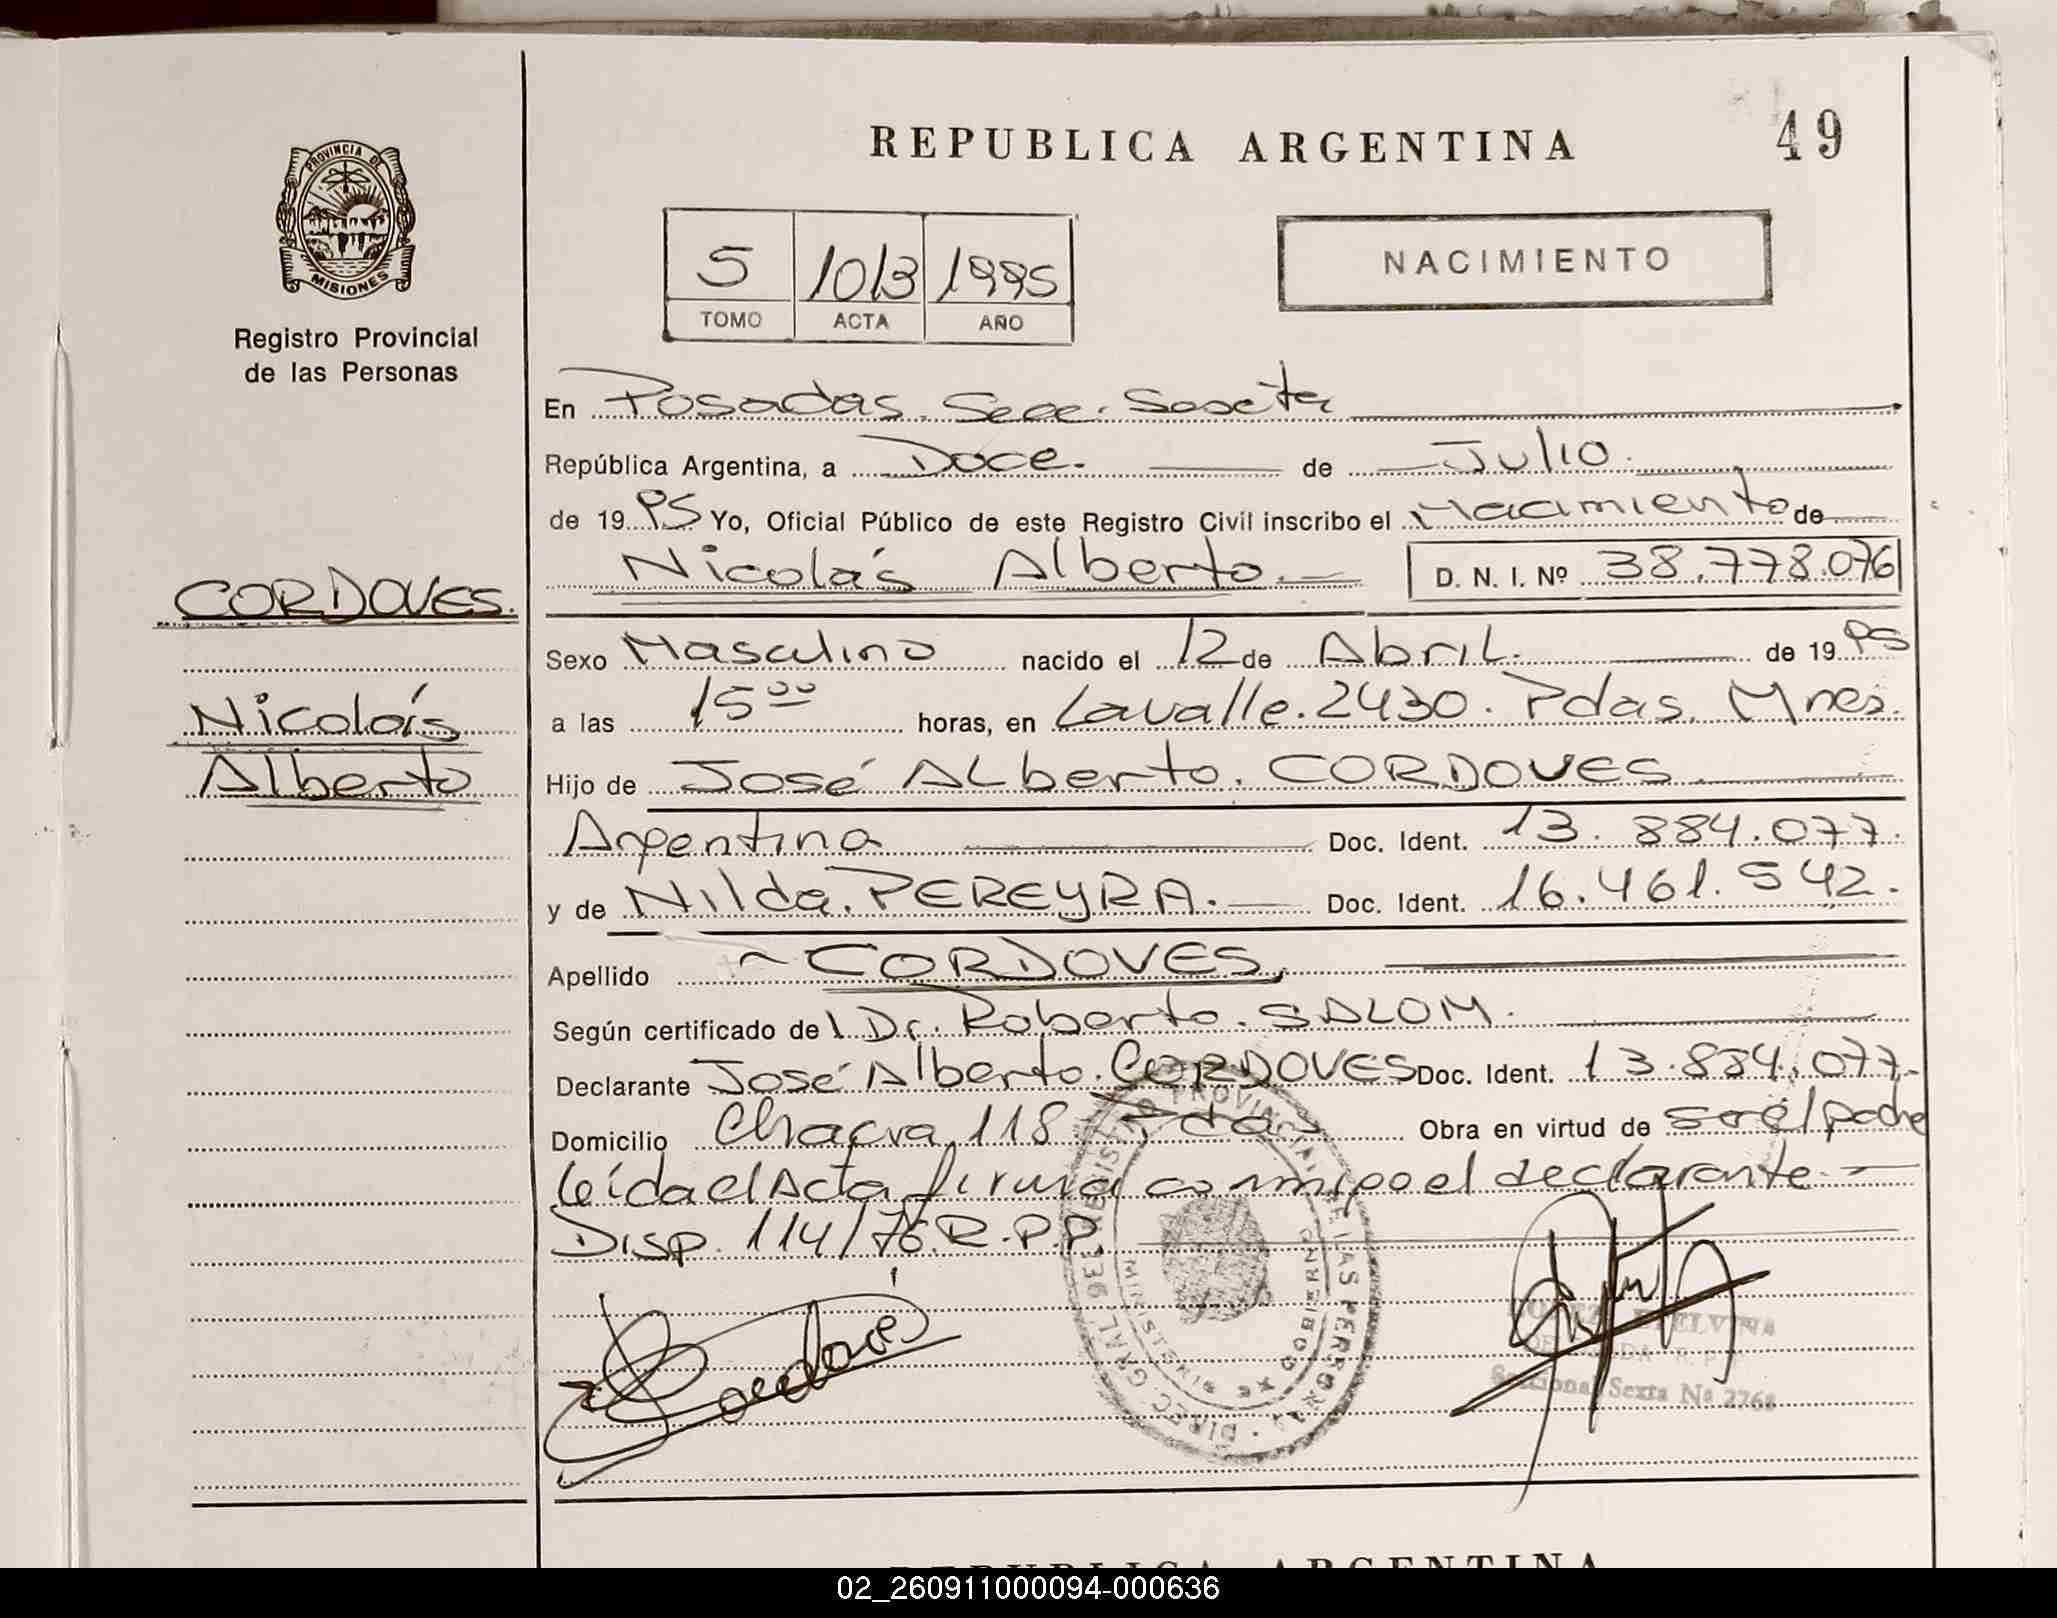 REPUBLICA ARGENTINA
49
PROVINCIA DE
MISIONES
Registro Provincial
de las Personas
5 1013 1995
TOMO ACTA AÑO
NACIMIENTO
En Posadas. Secc. Sexta
República Argentina, a Doce. de Julio.
de 1995 Yo, Oficial Público de este Registro Civil inscribo el Nacimiento de
Nicolás Alberto. D. N. I. Nº 38.778.076
CORDOVES.
Nicolás
Alberto
Sexo Masculino nacido el 12 de Abril. de 1995
a las 15⁰⁰ horas, en Lavalle. 2430. Pdas. Mnes.
Hijo de José Alberto. CORDOVES
Argentina Doc. Ident. 13.884.077.
y de Nilda. PEREYRA. Doc. Ident. 16.461.542.
Apellido CORDOVES,
Según certificado del Dr. Roberto. SALOM.
Declarante José Alberto. CORDOVES Doc. Ident. 13.884.077.
Domicilio Chacra 118 Pdas Obra en virtud de ser el padre
leída el Acta firma conmigo el declarante.
Disp. 114/76.R.P.P.
DIREC. GRAL DEL REGISTRO PROVINCIAL DE LAS PERSONAS
Cordoves
ETELVINA
R.P.P.
Seccional Sexta Nº 2768
REPUBLICA ARGENTINA
02_260911000094-000636